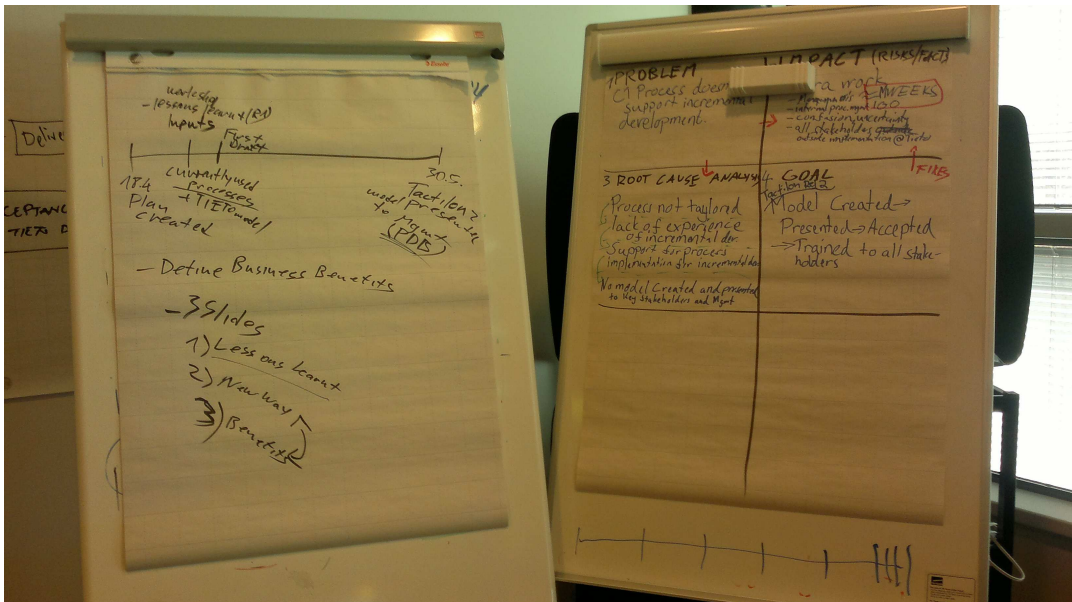 Delive
CEPTANC
TIETO D
workshop
- lessons learnt (R1)
Inputs
First
Draft
18.4
Plan
created
currently used
processes
+ TIETO model
30.5.
Tactilon 2
model presented
to Mgmt
(PDB)
- Define Business Benefits
- 3 Slides
1) Lessons learnt
2) New way
3) Benefits
1 PROBLEM
Process doesn
support incremental
development.
IMPACT (RISKS/FACT)
ra work
MWEEKS
- confusion, uncertainty
- all stakeholders
@Tieto
FIRES
3 ROOT CAUSE ANALYSIS
Process not taylored
lack of experience
of incremental dev.
Support for process
implementation for incremental dev
No model Created and presented
to key stakeholders and Mgmt
4 GOAL
Tactilon Rel 2
Model Created →
Presented → Accepted
→ Trained to all stake-
holders